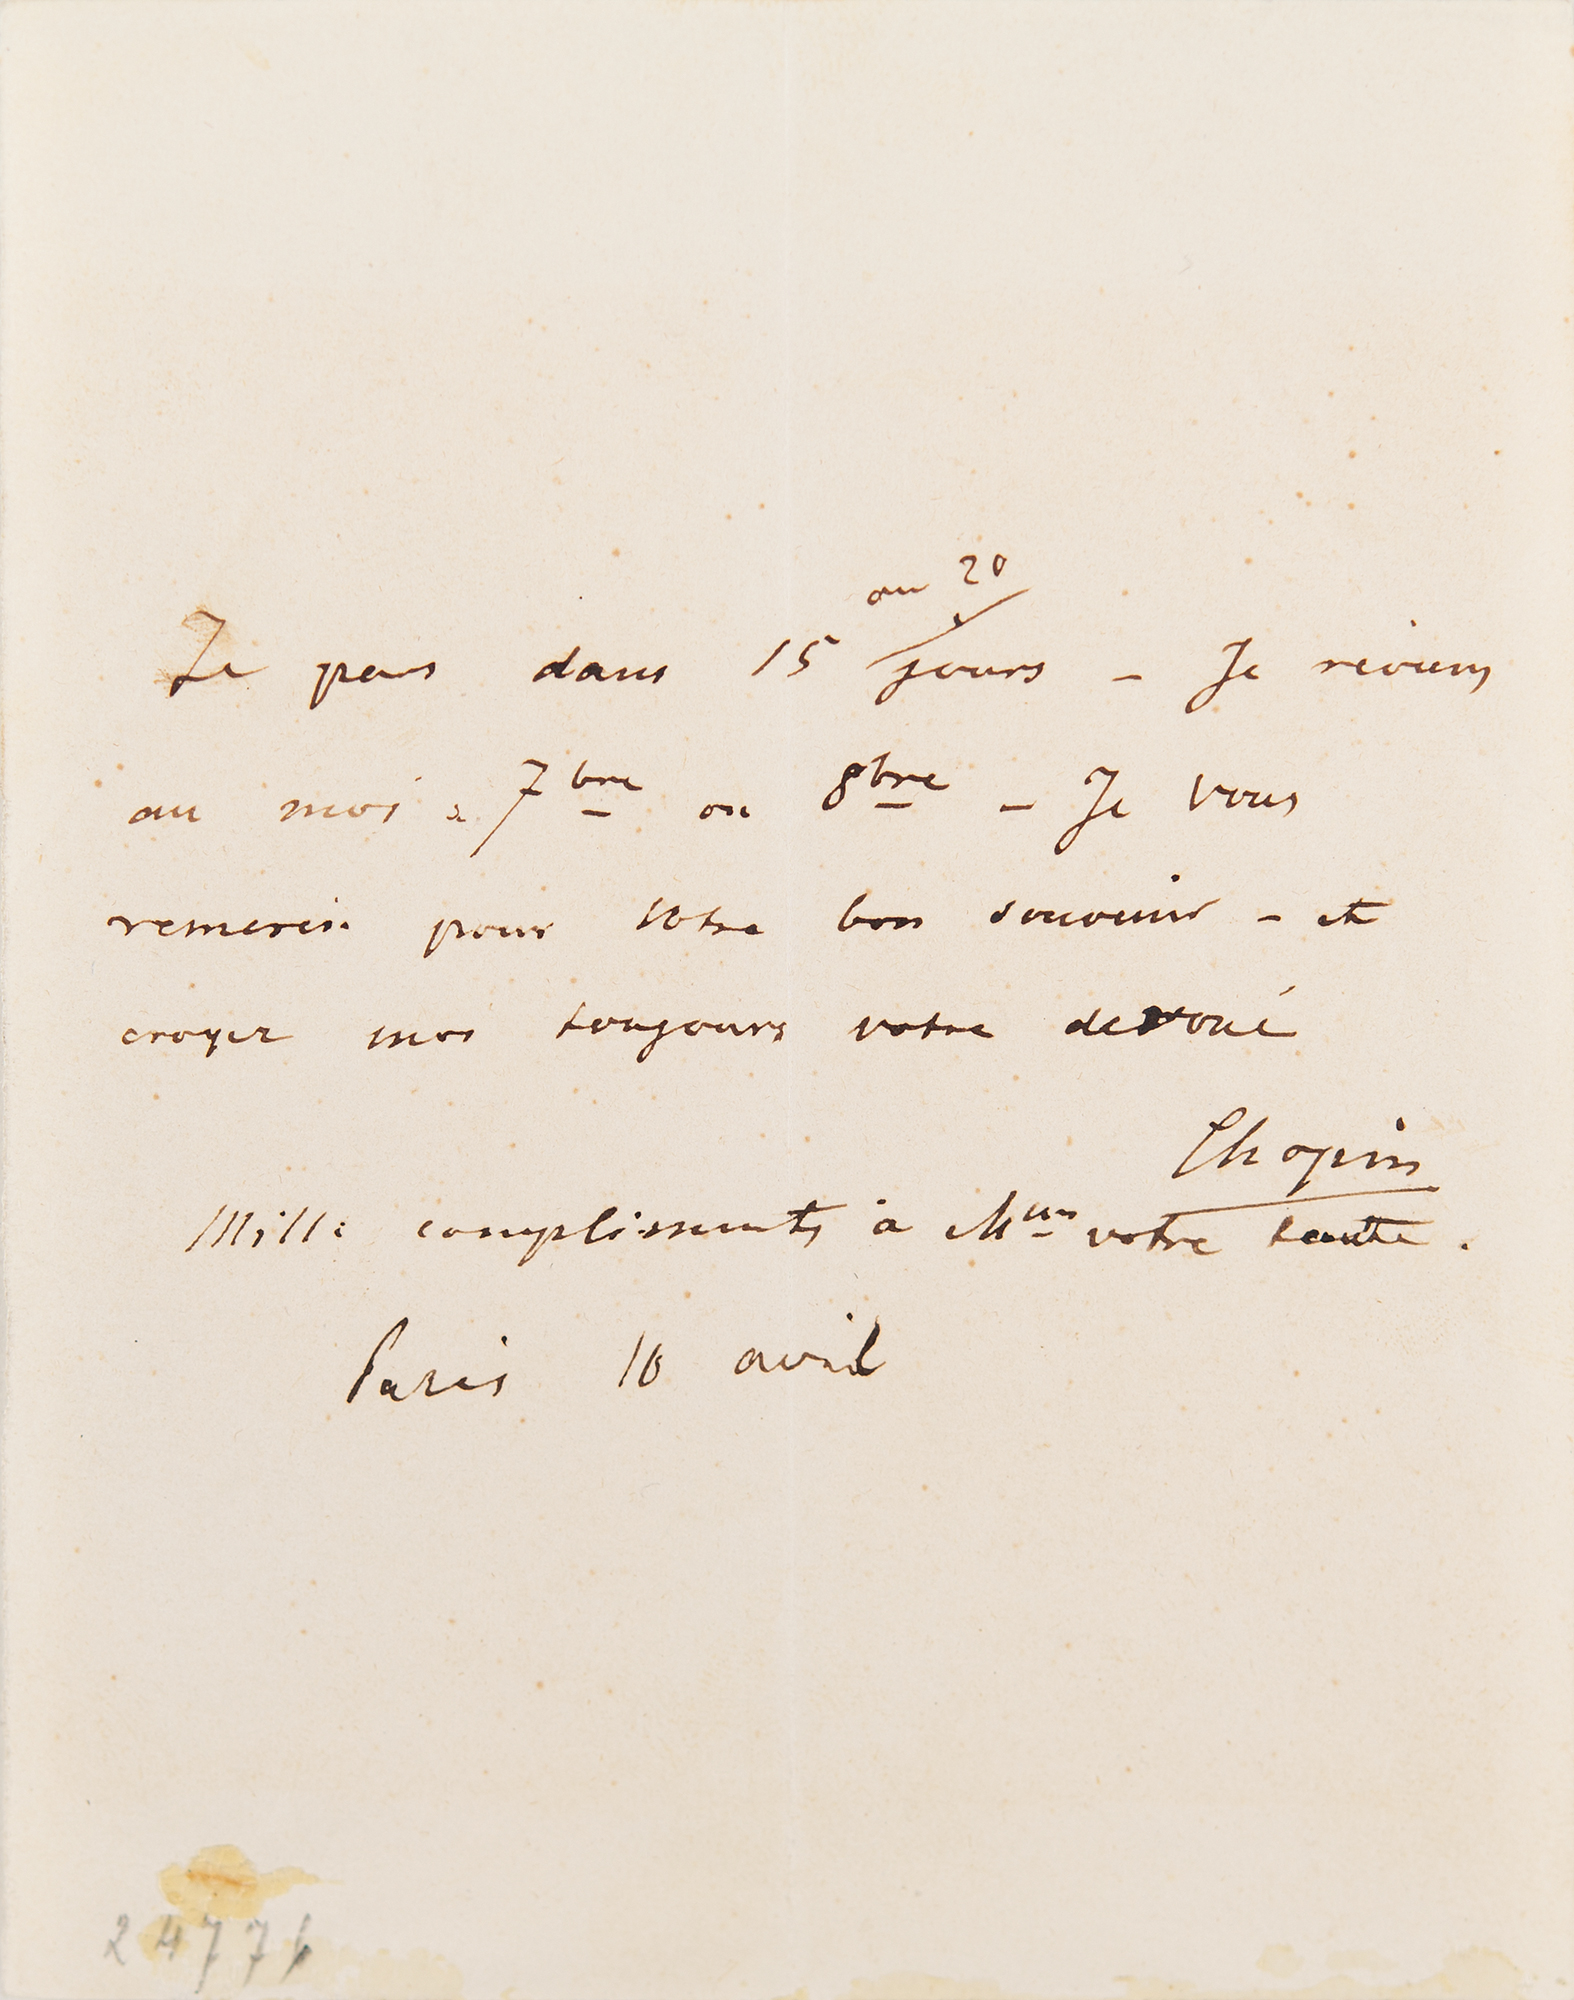 ou 20
Je pars dans 15 jours - Je reviens
au mois de 7bre ou 8bre - Je vous
remercie pour votre bon souvenir - et
croyez moi toujours votre devoué
Chopin
Mille compliments à Mme votre tante.
Paris 16 avril
24776